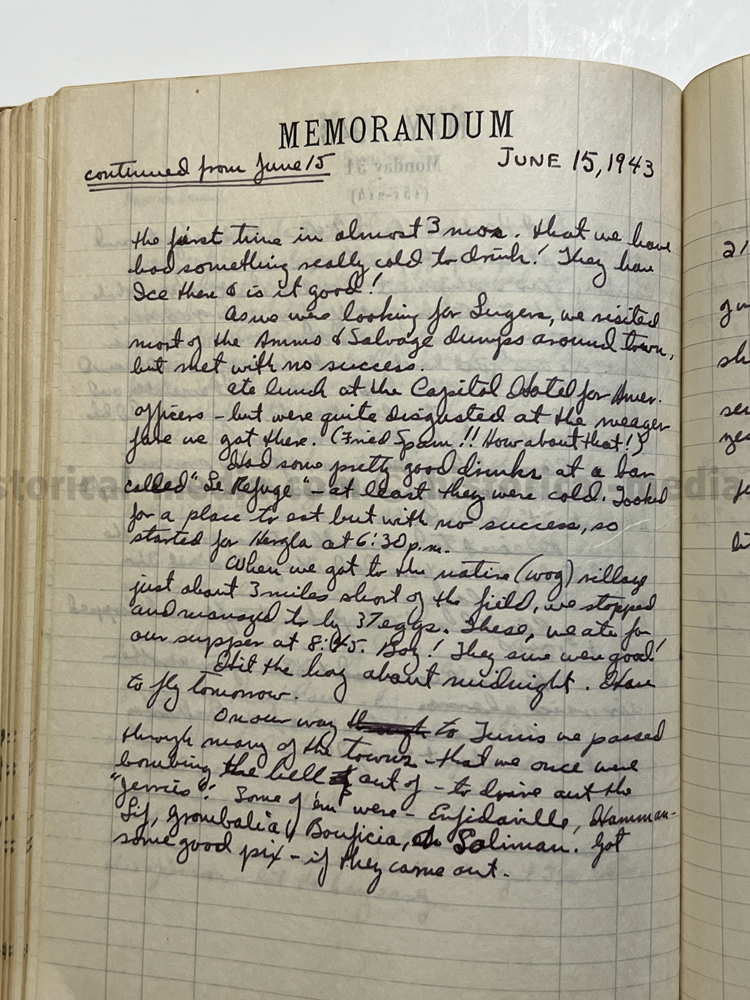 MEMORANDUM
continued from June 15
JUNE 15, 1943
the first time in almost 3 mos. that we have
had something really cold to drink! They have
Ice there & is it good!
As we were looking for Lugers, we visited
most of the Ammo & Salvage dumps around town,
but met with no success.
Ate lunch at the Capitol Hotel for Amer.
officers - but were quite disgusted at the meager
fare we got there. (Fried Spam!! How about that!)
Had some pretty good drinks at a bar
called "Le Refuge" - at least they were cold. Looked
for a place to eat but with no success, so
started for Hergla at 6:30 p.m.
When we got to the native (wog) village
just about 3 miles short of the field, we stopped
and managed to by 37 eggs. These, we ate for
our supper at 8:45. Boy! They sure were good!
Hit the hay about midnight. Have
to fly tomorrow.
On our way though to Tunis we passed
through many of the towns - that we once were
bombing the hell out of - to drive out the
"Jerries". Some of 'em were - Enfidaville, Hamman-
Lif, Grombalia, Bouficia, Soliman. Got
some good pix - if they came out.